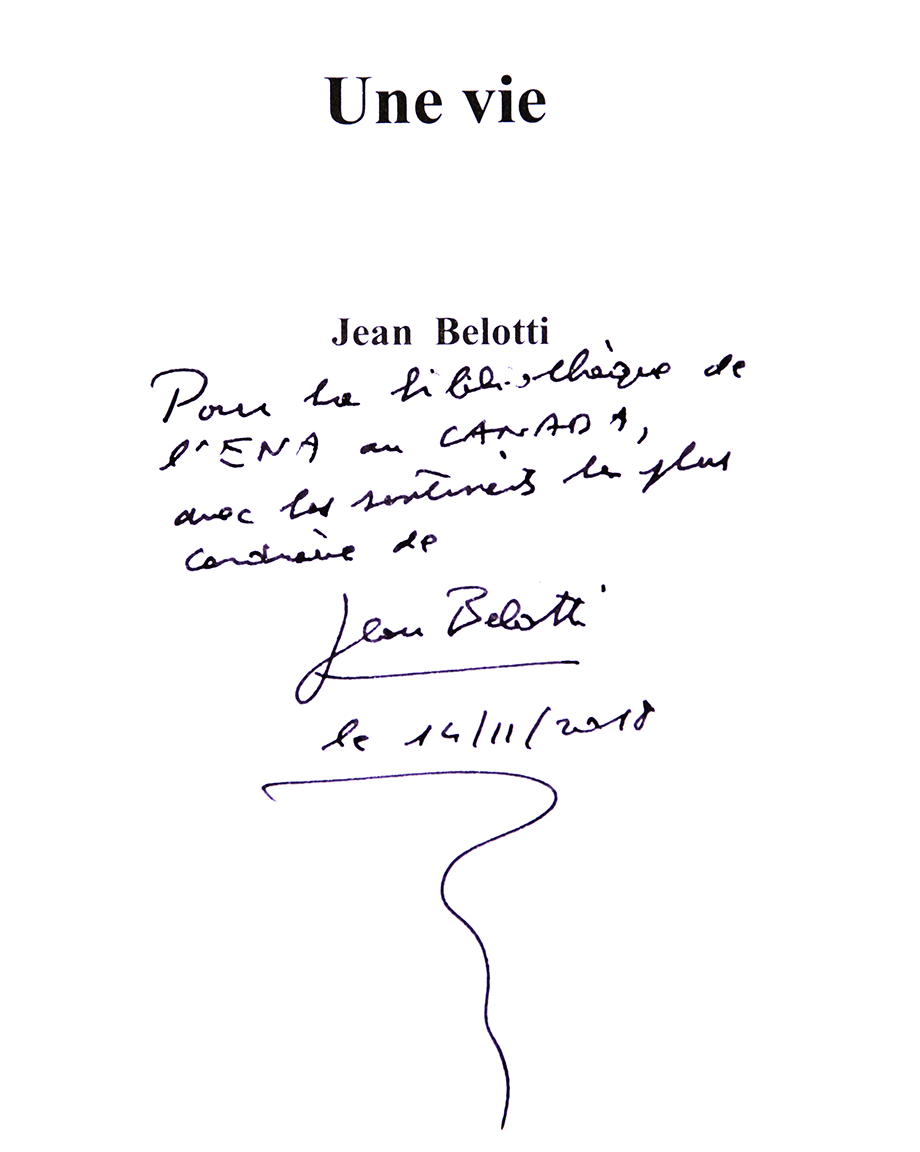 Une vie
Jean Belotti
Pour la bibliothèque de
l'ENA au CANADA,
avec les sentiments les plus
de
Jean Belotti
le 14/11/2018